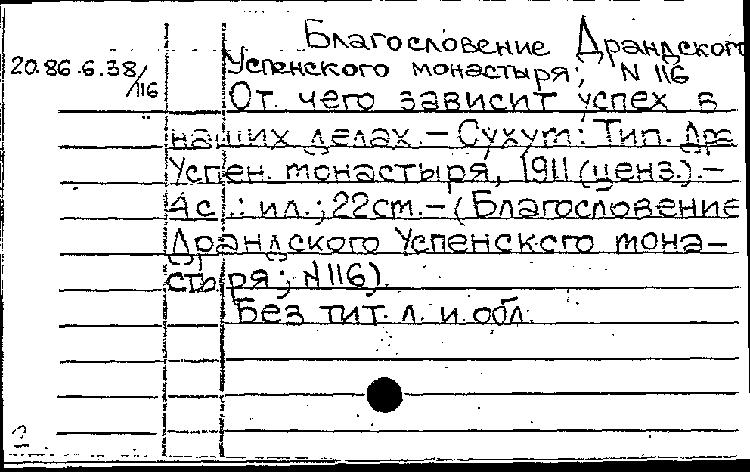 Благословение Драндского
20.86.6.38/116 Успенского монастыря; N 116
От чего зависит успех в
наших делах. – Сухум: Тип. Дра
Успен. монастыря, 1911 (ценз.). –
4с.: ил.; 22см. – (Благословение
Драндского Успенского мона–
стыря; N116).
Без тит. л. и обл.